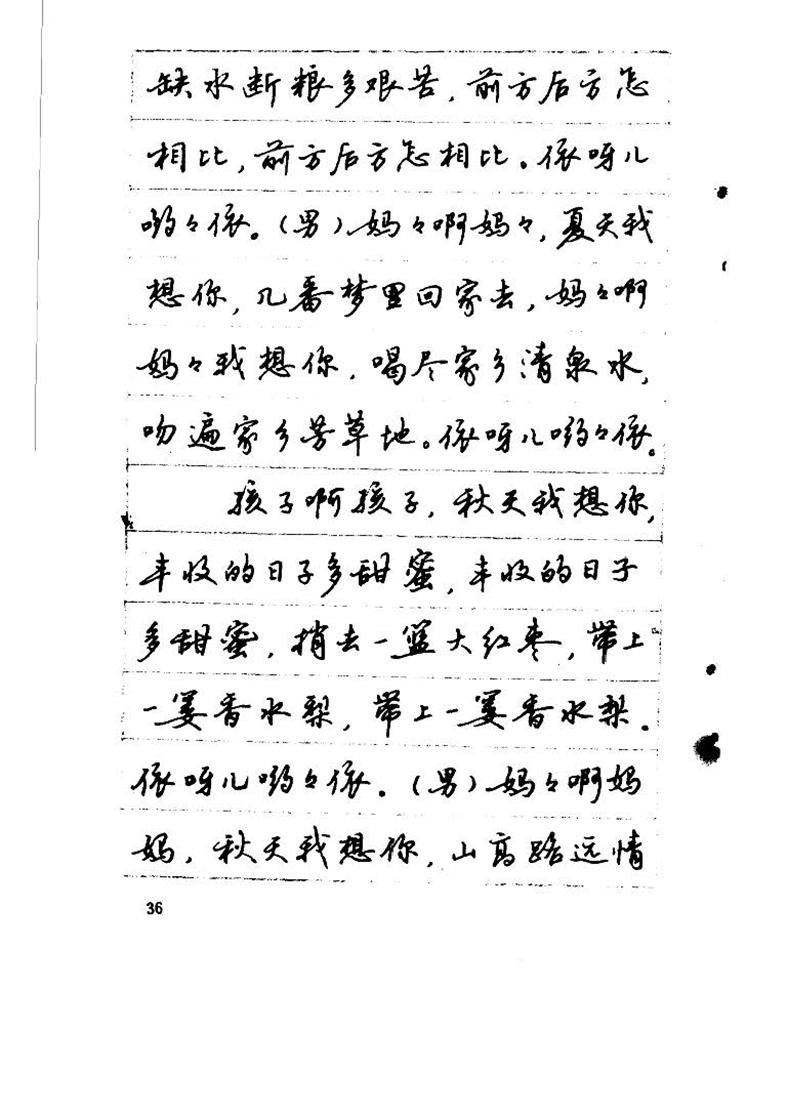 缺水断粮多艰苦，前方后方怎
相比，前方后方怎相比。依呀儿
哟々依。（男）妈々啊妈々，夏天我
想你，几番梦里回家去，妈々啊
妈々我想你，喝尽家乡清泉水，
吻遍家乡芳草地。依呀儿哟々依。
孩子啊孩子，秋天我想你，
丰收的日子多甜蜜，丰收的日子
多甜蜜，捎去一篮大红枣，带上
一篓香水梨，带上一篓香水梨。
依呀儿哟々依。（男）妈々啊妈
妈，秋天我想你，山高路远情
36